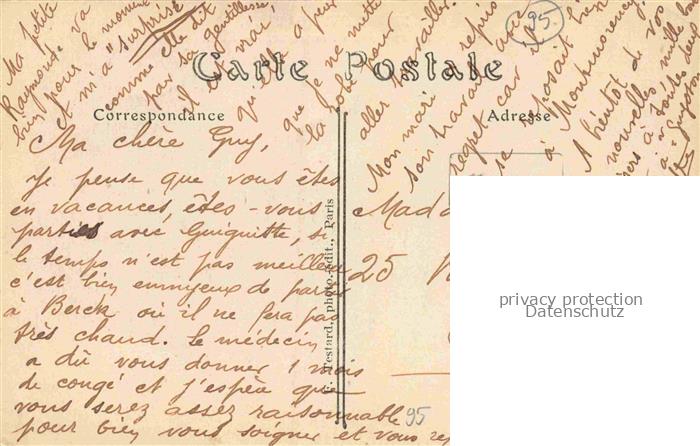 Carte Postale
Correspondance
Adresse
95.
Ma chère Guy,
Je pense que vous êtes
en vacances, êtes-vous
parties avec Guiguitte, si
le temps n'est pas meilleur
c'est bien ennuyeux de partir
à Berck où il ne fera pas
très chaud. Le médecin
a dû vous donner 1 mois
de congé et j'espère que
vous serez assez raisonnable
pour bien vous soigner et vous
Ma petite
Raymonde va
bien pour le moment
et m'a "surprise"
comme elle dit
par sa gentillesse
il est vrai,
qu'il y a peu
que je ne mette
la robe pour
aller travailler.
Mon mari a repris
son travail avec
car il
se reposait bien
à Montmorency.
A bientôt de vos
nouvelles mille
à toutes
à
Mada
25
Testard, photo.-édit., Paris
95
privacy protection
Datenschutz